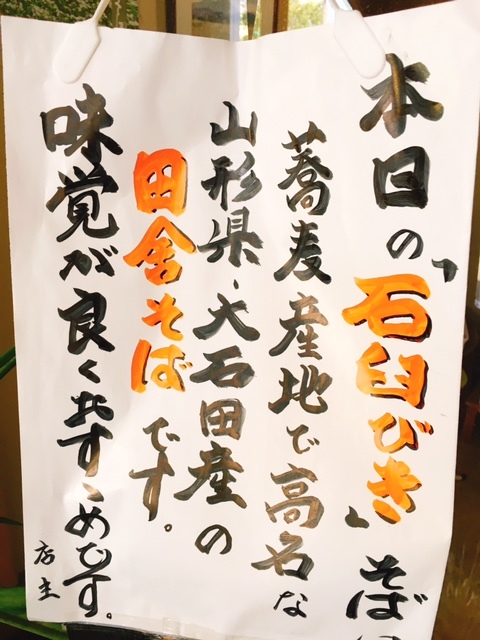 本日の「石臼びき」そば
蕎麦産地で高名な
山形県・大石田産の
田舎そばです。
味覚が良くおすゝめです。
店主